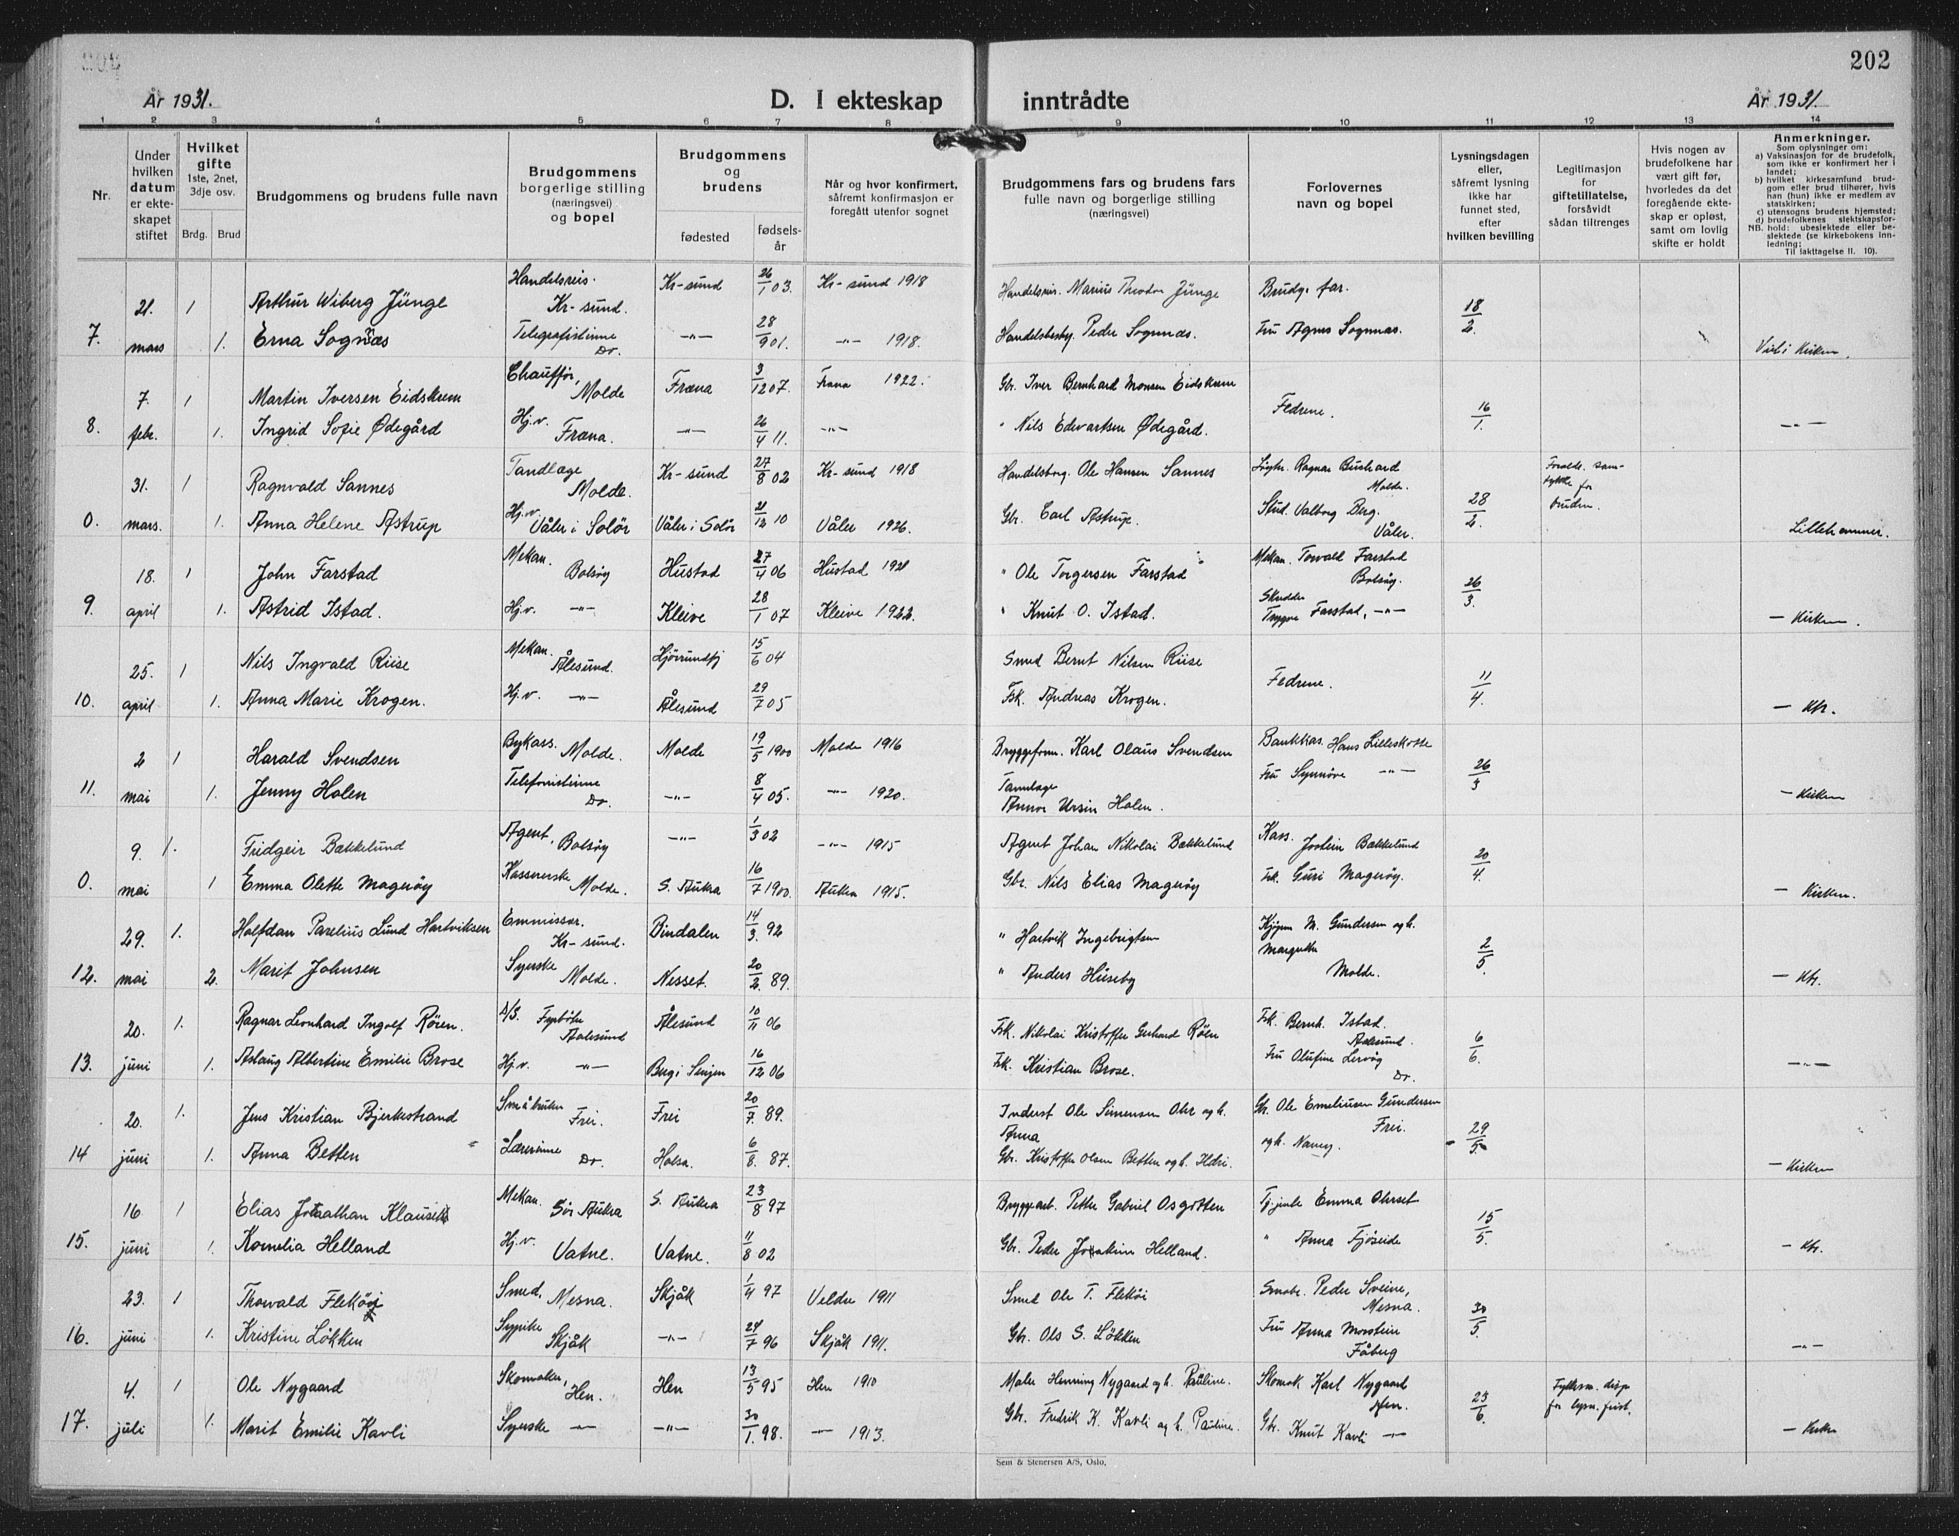 202
År 1931.
D. I ekteskap inntrådte
År 1931.
1 2 3 4 5 6 7 8 9 10 11 12 13 14
Nr.
Under hvilken datum er ekteskapet stiftet
Hvilket gifte 1ste, 2net, 3dje osv.
Brdg. Brud
Brudgommens og brudens fulle navn
Brudgommens borgerlige stilling (næringsvei) og bopel
Brudgommens og brudens
fødested
fødselsår
Når og hvor konfirmert, såfremt konfirmasjon er foregått utenfor sognet
Brudgommens fars og brudens fars fulle navn og borgerlige stilling (næringsvei)
Forlovernes navn og bopel
Lysningsdagen eller, såfremt lysning ikke har funnet sted, efter hvilken bevilling
Legitimasjon for giftetillatelse, forsåvidt sådan tiltrenges
Hvis nogen av brudefolkene har vært gift før, hvorledes da det foregående ekteskap er opløst, samt om lovlig skifte er holdt
Anmerkninger.
Som oplysninger om:
a) Vaksinasjon for de brudefolk, som ikke er konfirmert her i landet;
b) hvilket kirkesamfund brudgom eller brud tilhører, hvis han (hun) ikke er medlem av statskirken;
c) utensogns brudens hjemsted;
d) brudefolkenes slektskapsforhold: ubeslektede eller beslektede (se kirkebokens innledning;
NB.
Til Iakttagelse II. 10).
21. 1 Arthur Wiberg Jünge Handelsreis. Kr-sund. Kr-sund 26/1 03. Kr-sund 1918 Handelsreis. Marius Theodor Jünge Brudg. far. 18/2.
7. mars 1. Erna Sognnæs Telegrafistinne Do. -"- 28/9 01. -"- 1918. Handelsbesty. Peder Sognnæs. Fru Agnes Sognnæs. Viet i Kirken.
7. 1 Martin Iversen Eidskrem Chauffør, Molde Fræna 3/12 07. Fræna 1922. Gbr. Iver Bernhard Monsen Eidskrem Fedrene. 16/1.
8. febr. 1. Ingrid Sofie Ødegård Hj.v. Fræna. -"- 26/4 11. -"- " Nils Edvartsen Ødegård. -"-
31. 1 Ragnvald Sannes Tandlæge Molde. Kr-sund 27/8 02 Kr-sund 1918 Handelsborg. Ole Hansen Sannes Ragnar Buchard Molde. 28/2. Forelds. samtykke for bruden.
0. mars. 1. Anna Helene Astrup Hj.v. Våler i Solør Våler i Solør 21/12 10 Våler 1926. Gbr. Carl Astrup. Stud. Valborg Berg. Våler. Lillehammer.
18. 1 John Farstad Mekan. Bolsøy Hustad 27/4 06 Hustad 1921 " Ole Torgersen Farstad Mekan. Torvald Farstad Bolsøy. 26/3.
9. april 1. Astrid Istad. Hj.v. -"- Kleive 28/1 07 Kleive 1922. " Knut O. Istad. Skredder Trygve Farstad, -"- - Kirken.
25. 1 Nils Ingvald Riise Mekan. Ålesund. Hjørundfj 15/6 04 Smed Bernt Nilsen Riise Fedrene. 11/4
10. april 1. Anna Marie Krogen. Hj.v. -"- Ålesund 29/7 05 Fsk. Andreas Krogen. - Ktr.
2 1 Harald Svendsen Bykass. Molde. Molde 19/5 1900 Molde 1916 Bryggeform. Karl Olaus Svendsen Bankkas. Hans Lilleskotte 26/3
11. mai 1. Jenny Holen Telefonistinne Do. -"- 8/4 05. -"- 1920. Tannlæge Annar Ursin Holen. Fru Synnøve -"- - Kirken
9. 1. Fridgeir Bækkelund Agent, Bolsøy -"- 1/3 02 -"- 1915 Agent Johan Nikolai Bækkelund Kass. Jostein Bækkelund 20/4.
0. mai 1 Emma Olette Magerøy Kassererske Molde. S. Aukra 16/7 1900. Aukra 1915. Gbr. Nils Elias Magerøy Frk. Guri Magerøy. - Kirken.
29. 1. Halfdan Parelius Lund Hartviksen Emmissær. Kr-sund. Bindalen 14/3. 92 " Hartvik Ingebrigtsen Kjøpm. M. Gundersen og h. Margrethe 2/5.
12. mai 2. Marit Johnsen Syerske Molde. Nesset. 20/2. 89. " Anders Huseby Molde. - Ktr.
20. 1. Ragnar Leonhard Ingolf Røren. D/S. Fyrbøter Aalesund Ålesund 10/11 06 Fsk. Nikolai Kristoffer Gerhard Røren Fsk. Bernh. Istad. Aalesund. 6/6.
13. juni 1. Aslaug Albertine Emilie Brose Hj.v. -"- Berg i Senjen 16/12 06 Fsk. Kristian Brose. Fru Olufine Lervåg Do. -"-
20. 1. Jens Kristian Bjerkestrand Småbruker Frei. Frei 20/7. 89. Inderst Ole Simensen Ohr og h. Anna Gbr. Ole Emeliusen Gundersen Frei. 29/5.
14 juni 1. Anna Betten Lærerinne Do. Halsa. 6/8. 87. Gbr. Kristoffer Olsen Betten og h. Ildri. og h. Nanny. - Kirken
16 1 Elias Jonathan Klauset Mekan. Sør Aukra S. Aukra 23/8 97 Bryggearb. Petter Gabriel Osgotten Tj.jente Emma Ohrset 15/5.
15. juni 1. Kornelia Helland Hj.v. Vatne. Vatne. 11/8 02 Gbr. Peder Joakim Helland. " Anna Fjøseide - Ktr.
23. 1 Thorvald Flekøij Smed, Mesna. Skjåk 1/4 97 Veldre 1911 Smed Ole T. Flekøi Smabr. Peder Sveine, Mesna. 30/5.
16. juni 1. Kristine Løkken Sypike Skjåk -"- 24/7 96 Skjåk 1911. Gbr. Ols S. Løkken Fru Anna Morstein Fåberg -"-
4. 1 Ole Nygaard Skomaker, Hen. Hen 13/5 95 Hen 1910 Maler Henning Nygaard og h. Pauline. Skomak Karl Nygaard Hen. 23/6. Fylkesm. disp for lysn. frist.
17. juli 1. Marit Emilie Kavli Syerske -"- -"- 30/1. 98. -"- 1913. Gbr. Fredrik K. Kavli og h. Pauline. Gbr. Knut Kavli -"- - Kirken
Sem & Stenersen A/S, Oslo.